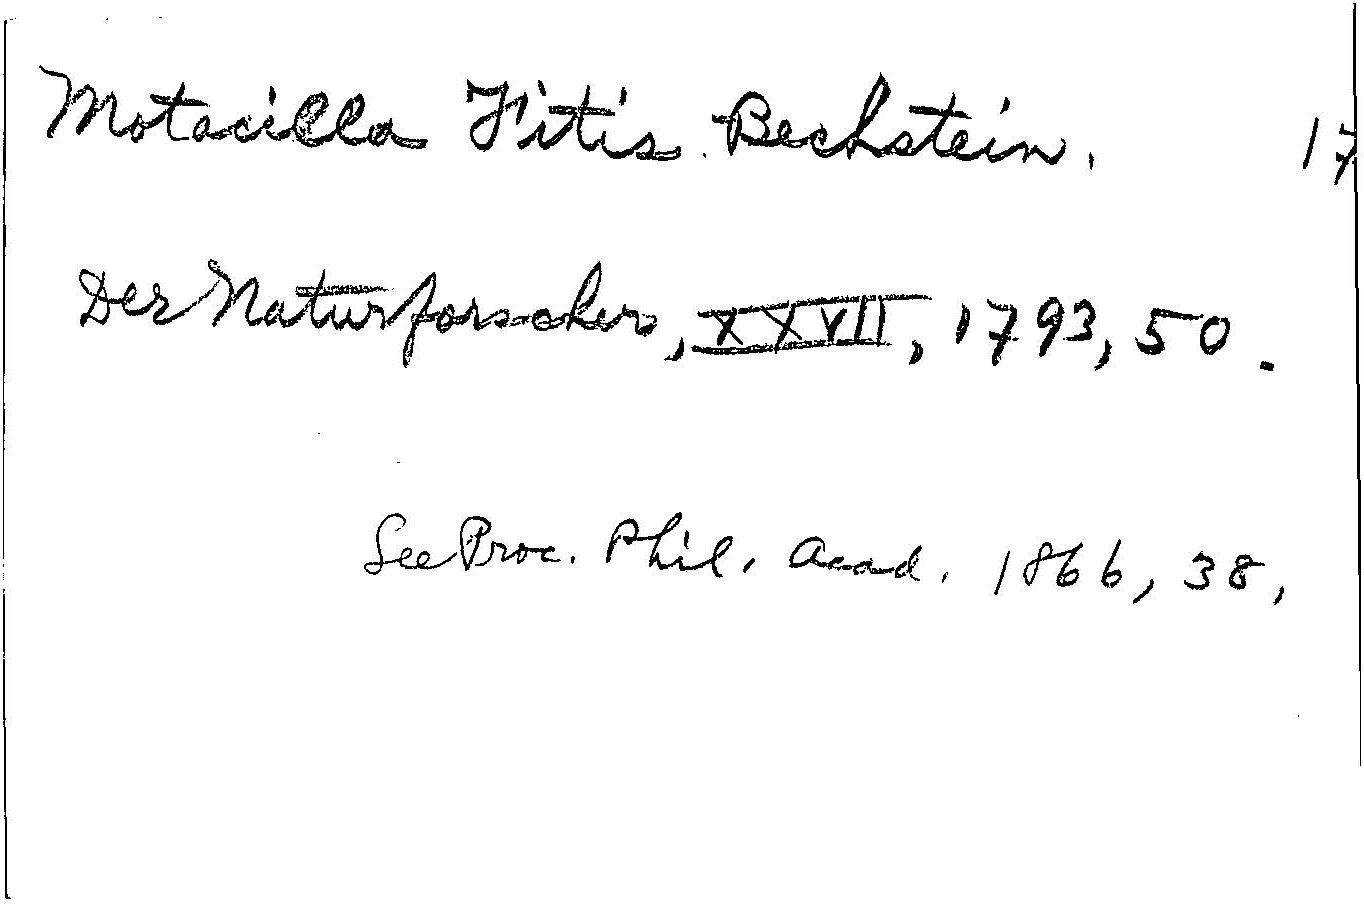 Motacilla Fitis Bechstein. 17
Der Naturforscher, XXVII, 1793, 50.
See Proc. Phil. Acad. 1866, 38,